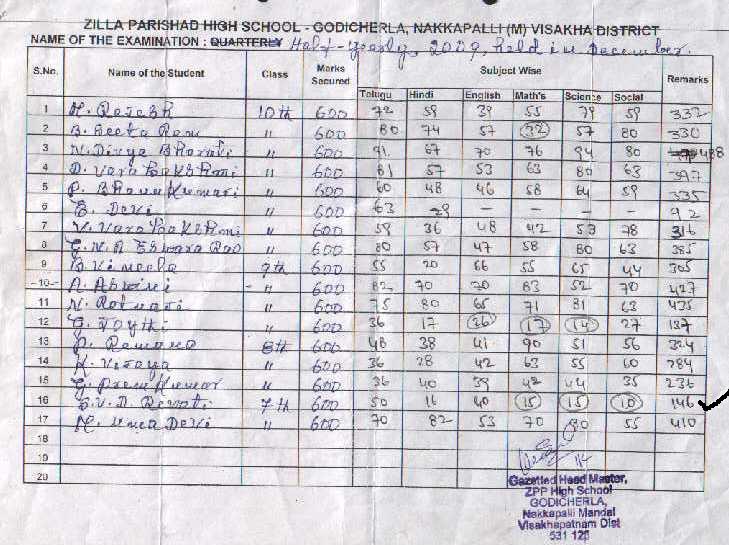 ZILLA PARISHAD HIGH SCHOOL - GODICHERLA, NAKKAPALLI (M) VISAKHA DISTRICT
NAME OF THE EXAMINATION : QUARTERLY Half-yearly, 2009, held in December.
S.No. Name of the Student Class Marks Secured Subject Wise Remarks
Telugu Hindi English Math's Science Social
1 10th 600 72 59 39 55 79 59 332
2 B. Seeta Ram " 600 80 74 57 32 57 80 330
3 N. Divya Bharati " 600 91 67 70 76 94 80 488
4 D. Vara Lakshmi " 600 81 57 53 63 80 63 397
5 P. Bhanu Kumari " 600 60 48 46 58 64 59 335
6 E. Devi " 600 63 29 - - - - 92
7 V. Vara Lakshmi " 600 59 36 48 42 53 78 316
8 Eswara Rao " 600 80 57 47 58 80 63 385
9 9th 600 55 20 66 55 65 44 305
10 " 600 82 70 70 83 52 70 427
11 N. Ratnavati " 600 75 80 65 71 81 63 435
12 " 600 36 17 26 17 14 27 137
13 P. Ramana 8th 600 48 38 41 90 51 56 324
14 K. Vijaya " 600 36 28 42 63 55 60 284
15 G. Prem Kumar " 600 36 40 39 42 44 35 236
16 E.V.D. Revati 7th 600 50 16 40 15 15 10 146
17 M. Uma Devi " 600 70 82 53 70 80 55 410
18
19
20
Gazetted Head Master,
ZPP High School
GODICHERLA,
Nakkapalli Mandal
Visakhapatnam Dist
531 120